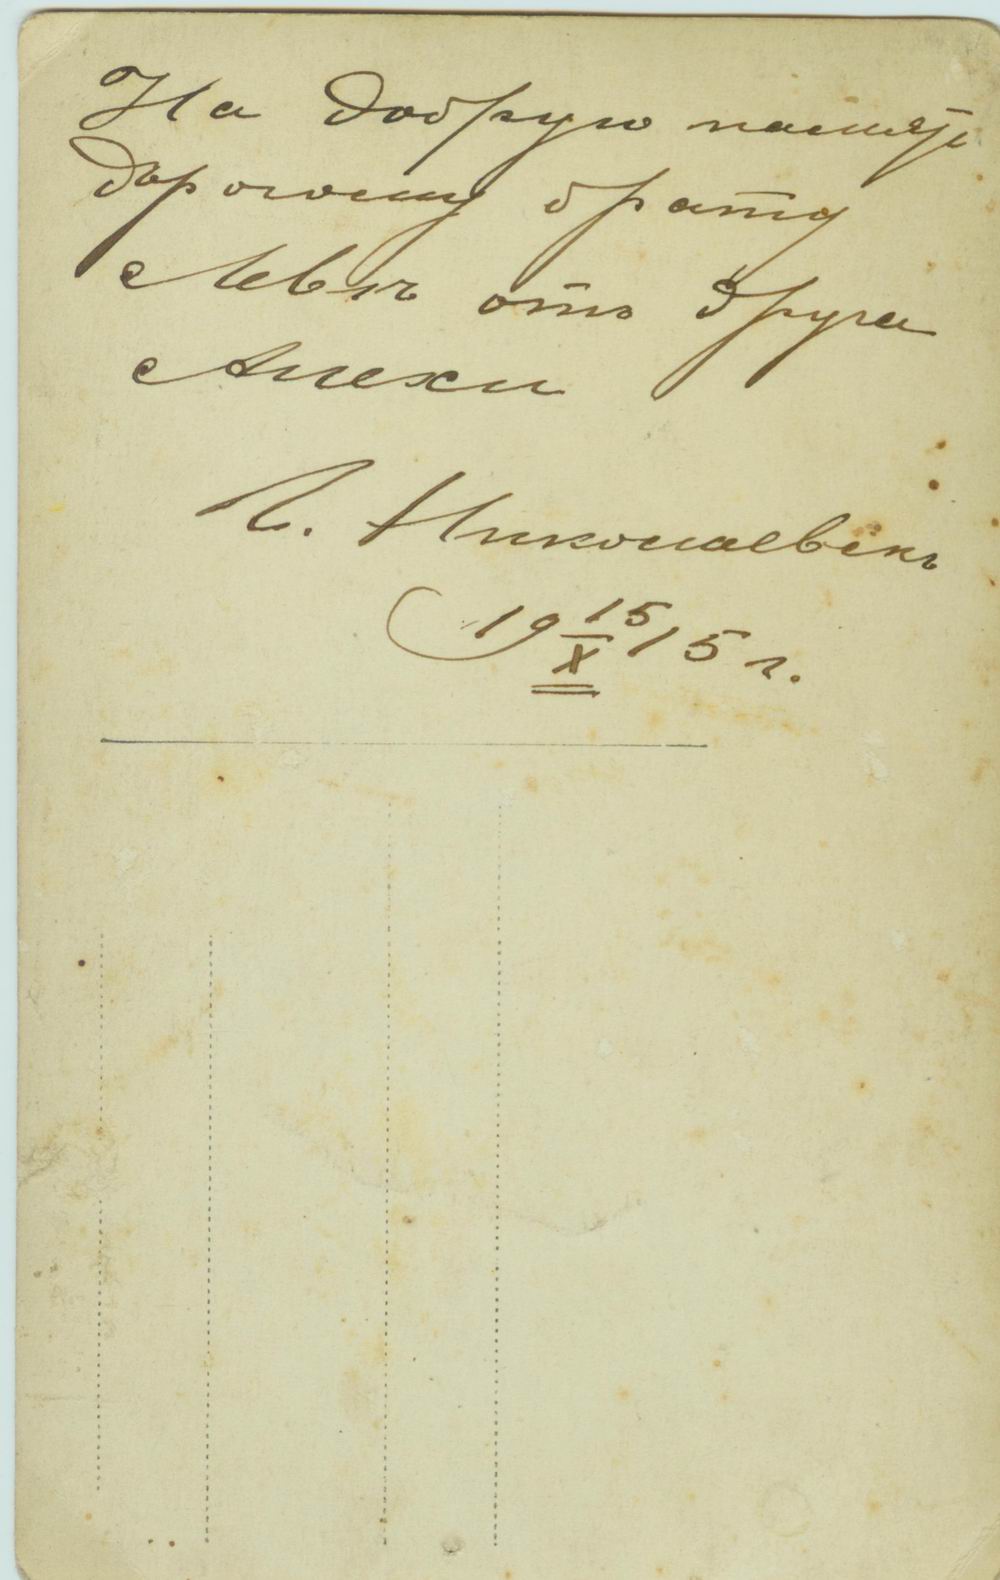 На добрую память
дорогому брату
Левъ отъ друга
Алехи
Г. Николаевскъ
19 15/X 15 г.